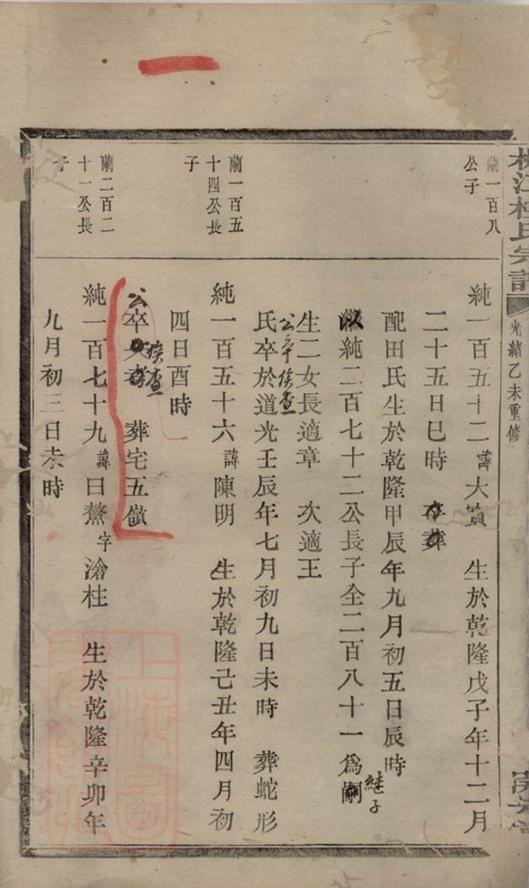 江杜氏宗譜
光緒乙未重修
蘭一百八
公子
純一百五十二諱大賓 生於乾隆戊子年十二月
二十五日巳時 卒葬
配田氏生於乾隆甲辰年九月初五日辰時
純二百七十二公長子全二百八十一爲嗣繼子
生二女長適章 次適王
公卒俟查
氏卒於道光壬辰年七月初九日未時 葬蛇形
蘭一百五
十四公長
子
純一百五十六諱陳明 生於乾隆己丑年四月初
四日酉時
公卒俟查 葬宅五嶺
蘭二百二
十一公長
子
純一百七十九諱曰鰲字滄柱 生於乾隆辛卯年
九月初三日未時
上海圖